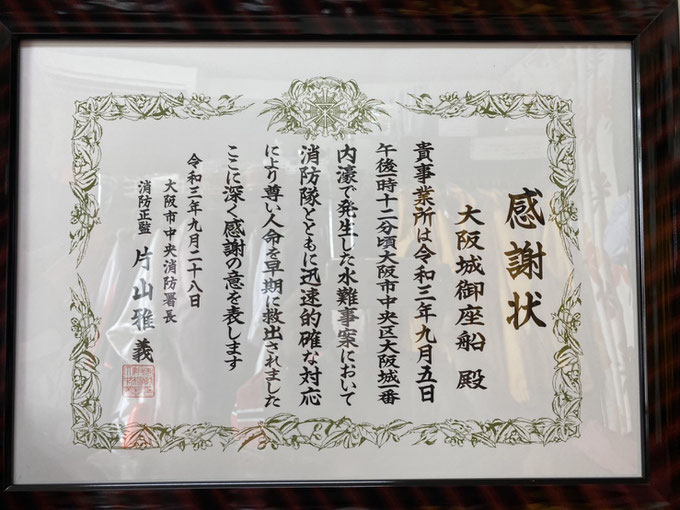 感謝状
大阪城御座船 殿
貴事業所は令和三年九月五日
午後一時十二分頃大阪市中央区大阪城番
内濠で発生した水難事案において
消防隊とともに迅速的確な対応
により尊い人命を早期に救出されました
ここに深く感謝の意を表します
令和三年九月二十八日
大阪市中央消防署長
消防正監 片山雅義